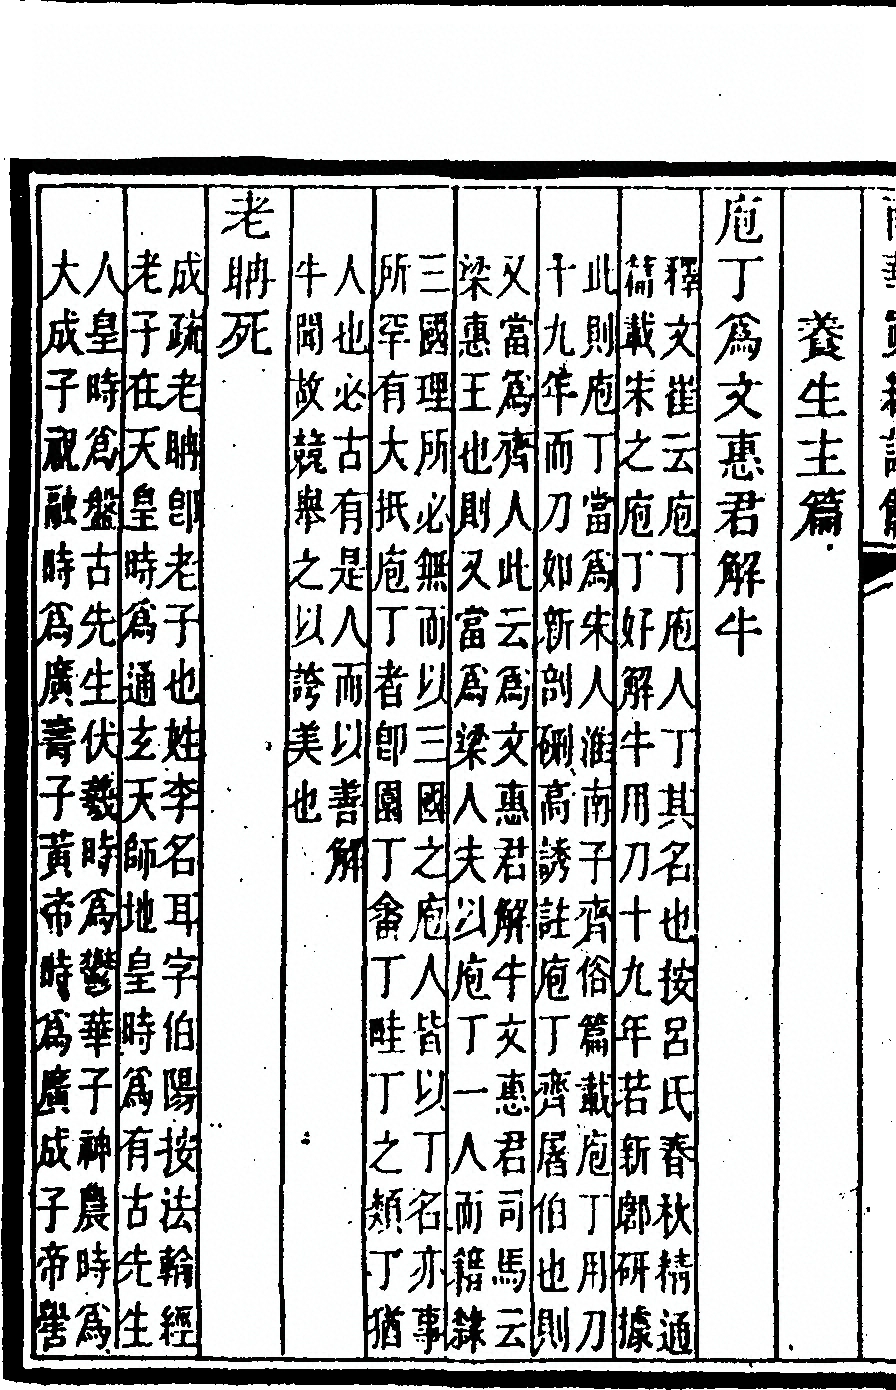 養生主篇
庖丁爲文惠君解牛
釋文崔云庖丁庖人丁其名也按呂氏春秋精通
篇載宋之庖丁好解牛用刀十九年若新䣛研據
此則庖丁當爲宋人淮南子齊俗篇載庖丁用刀
十九年而刀如新剖硎高誘註庖丁齊屠伯也則
又當爲齊人此云爲文惠君解牛文惠君司馬云
梁惠王也則又當爲梁人夫以庖丁一人而籍隸
三國理所必無而以三國之庖人皆以丁名亦事
所罕有大抵庖丁者卽園丁畲丁畦丁之類丁猶
人也必古有是人而以善解
牛聞故競舉之以誇美也
老聃死
成疏老聃卽老子也姓李名耳字伯陽按法輪經
老子在天皇時爲通玄天師地皇時爲有古先生
人皇時爲盤古先生伏羲時爲鬱華子神農時爲
大成子祝融時爲廣壽子黃帝時爲廣成子帝嚳